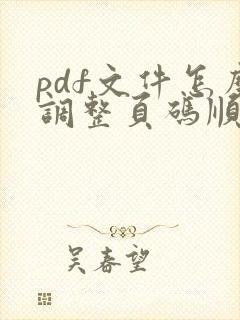 pdf文件怎麼
調整頁碼順
吴春望